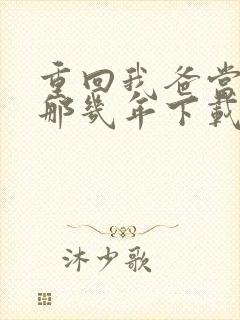 重回我爸当
那几年下载
沐少歌